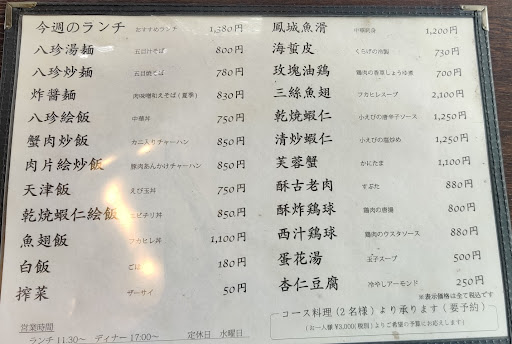 今週のランチ おすすめランチ 1,380円
八珍湯麺 五目汁そば 800円
八珍炒麺 五目焼そば 780円
炸醤麺 肉味噌和えそば(夏季) 830円
八珍絵飯 中華丼 750円
蟹肉炒飯 カニ入りチャーハン 850円
肉片絵炒飯 豚肉あんかけチャーハン 850円
天津飯 えび玉丼 750円
乾焼蝦仁絵飯 エビチリ丼 850円
魚翅飯 フカヒレ丼 1,100円
白飯 ごはん 180円
搾菜 ザーサイ 50円
営業時間
ランチ 11:30～ ディナー 17:00～ 定休日 水曜日
鳳城魚滑 中華刺身 1,200円
海蜇皮 くらげの冷製 730円
玫瑰油鶏 鶏肉の香草しょうゆ煮 700円
三絲魚翅 フカヒレスープ 2,100円
乾焼蝦仁 小えびの唐辛子ソース 1,250円
清炒蝦仁 小えびの塩炒め 1,250円
芙蓉蟹 かにたま 1,100円
酥古老肉 すぶた 880円
酥炸鶏球 鶏肉の唐揚 800円
西汁鶏球 鶏肉のウスタソース 880円
蛋花湯 玉子スープ 500円
杏仁豆腐 冷やしアーモンド 250円
※表示価格は全て税込です
コース料理(2名様)より承ります(要予約)
(お一人様 ¥3,000(税別)よりご希望の予算にお応えします)